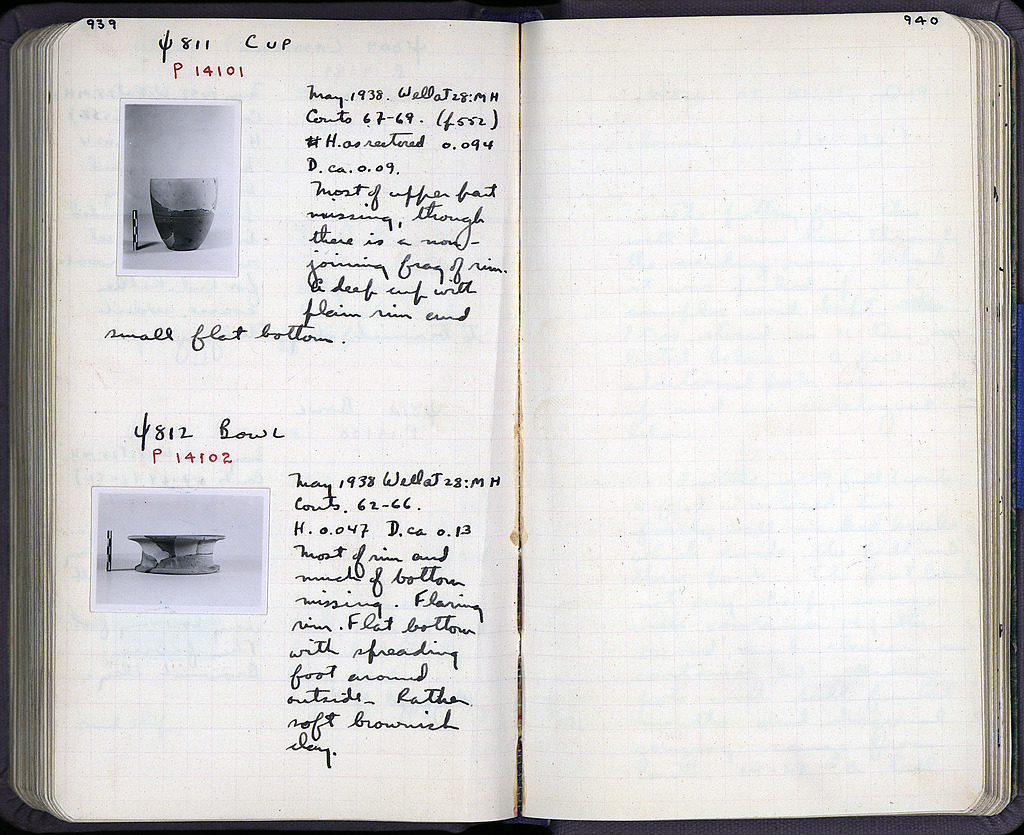 939
940
ψ811 CUP
P 14101
May. 1938. Well at 28:MH
Conts 67-69. (f.552)
H. as restored 0.094
D. ca. 0.09.
Most of upper part
missing, though
there is a non-
joining frag of rim.
A deep cup with
plain rim and
small flat bottom.
ψ812 BOWL
P 14102
May 1938 Well at 28:MH
Conts. 62-66.
H. 0.047 D. ca 0.13
Most of rim and
much of bottom
missing. Flaring
rim. Flat bottom
with spreading
foot around
outside_ Rather
soft brownish
clay.